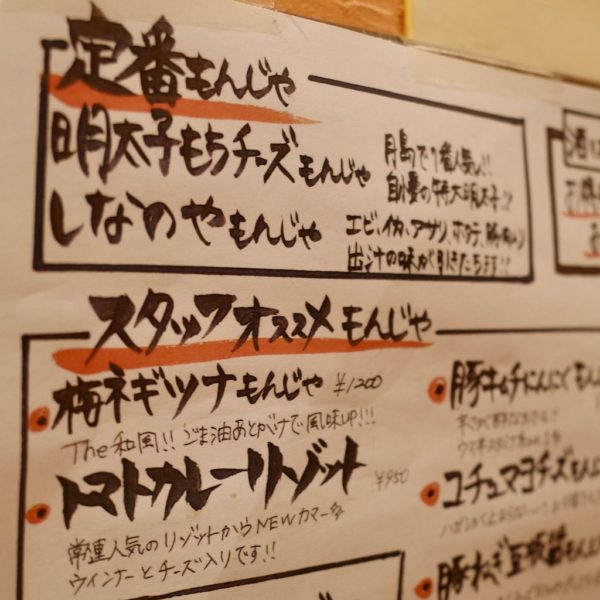 定番もんじゃ
明太子もちチーズもんじゃ
月島で1番人気!!
自慢の特大明太子!!
しなのやもんじゃ
エビ、イカ、アサリ、ホタテ、豚肉入り
出汁の味が引きたちます!!
スタッフオススメもんじゃ
梅ネギツナもんじゃ ¥1200
The和風!!ごま油あとがけで風味UP!!!
トマトカレーリゾット ¥950
常連人気のリゾットからNEWカマー☆
ウインナーとチーズ入りです!!
豚キムチにんにくもん
コチュマヨチーズもん
豚ねぎ豆板醤もん
酒